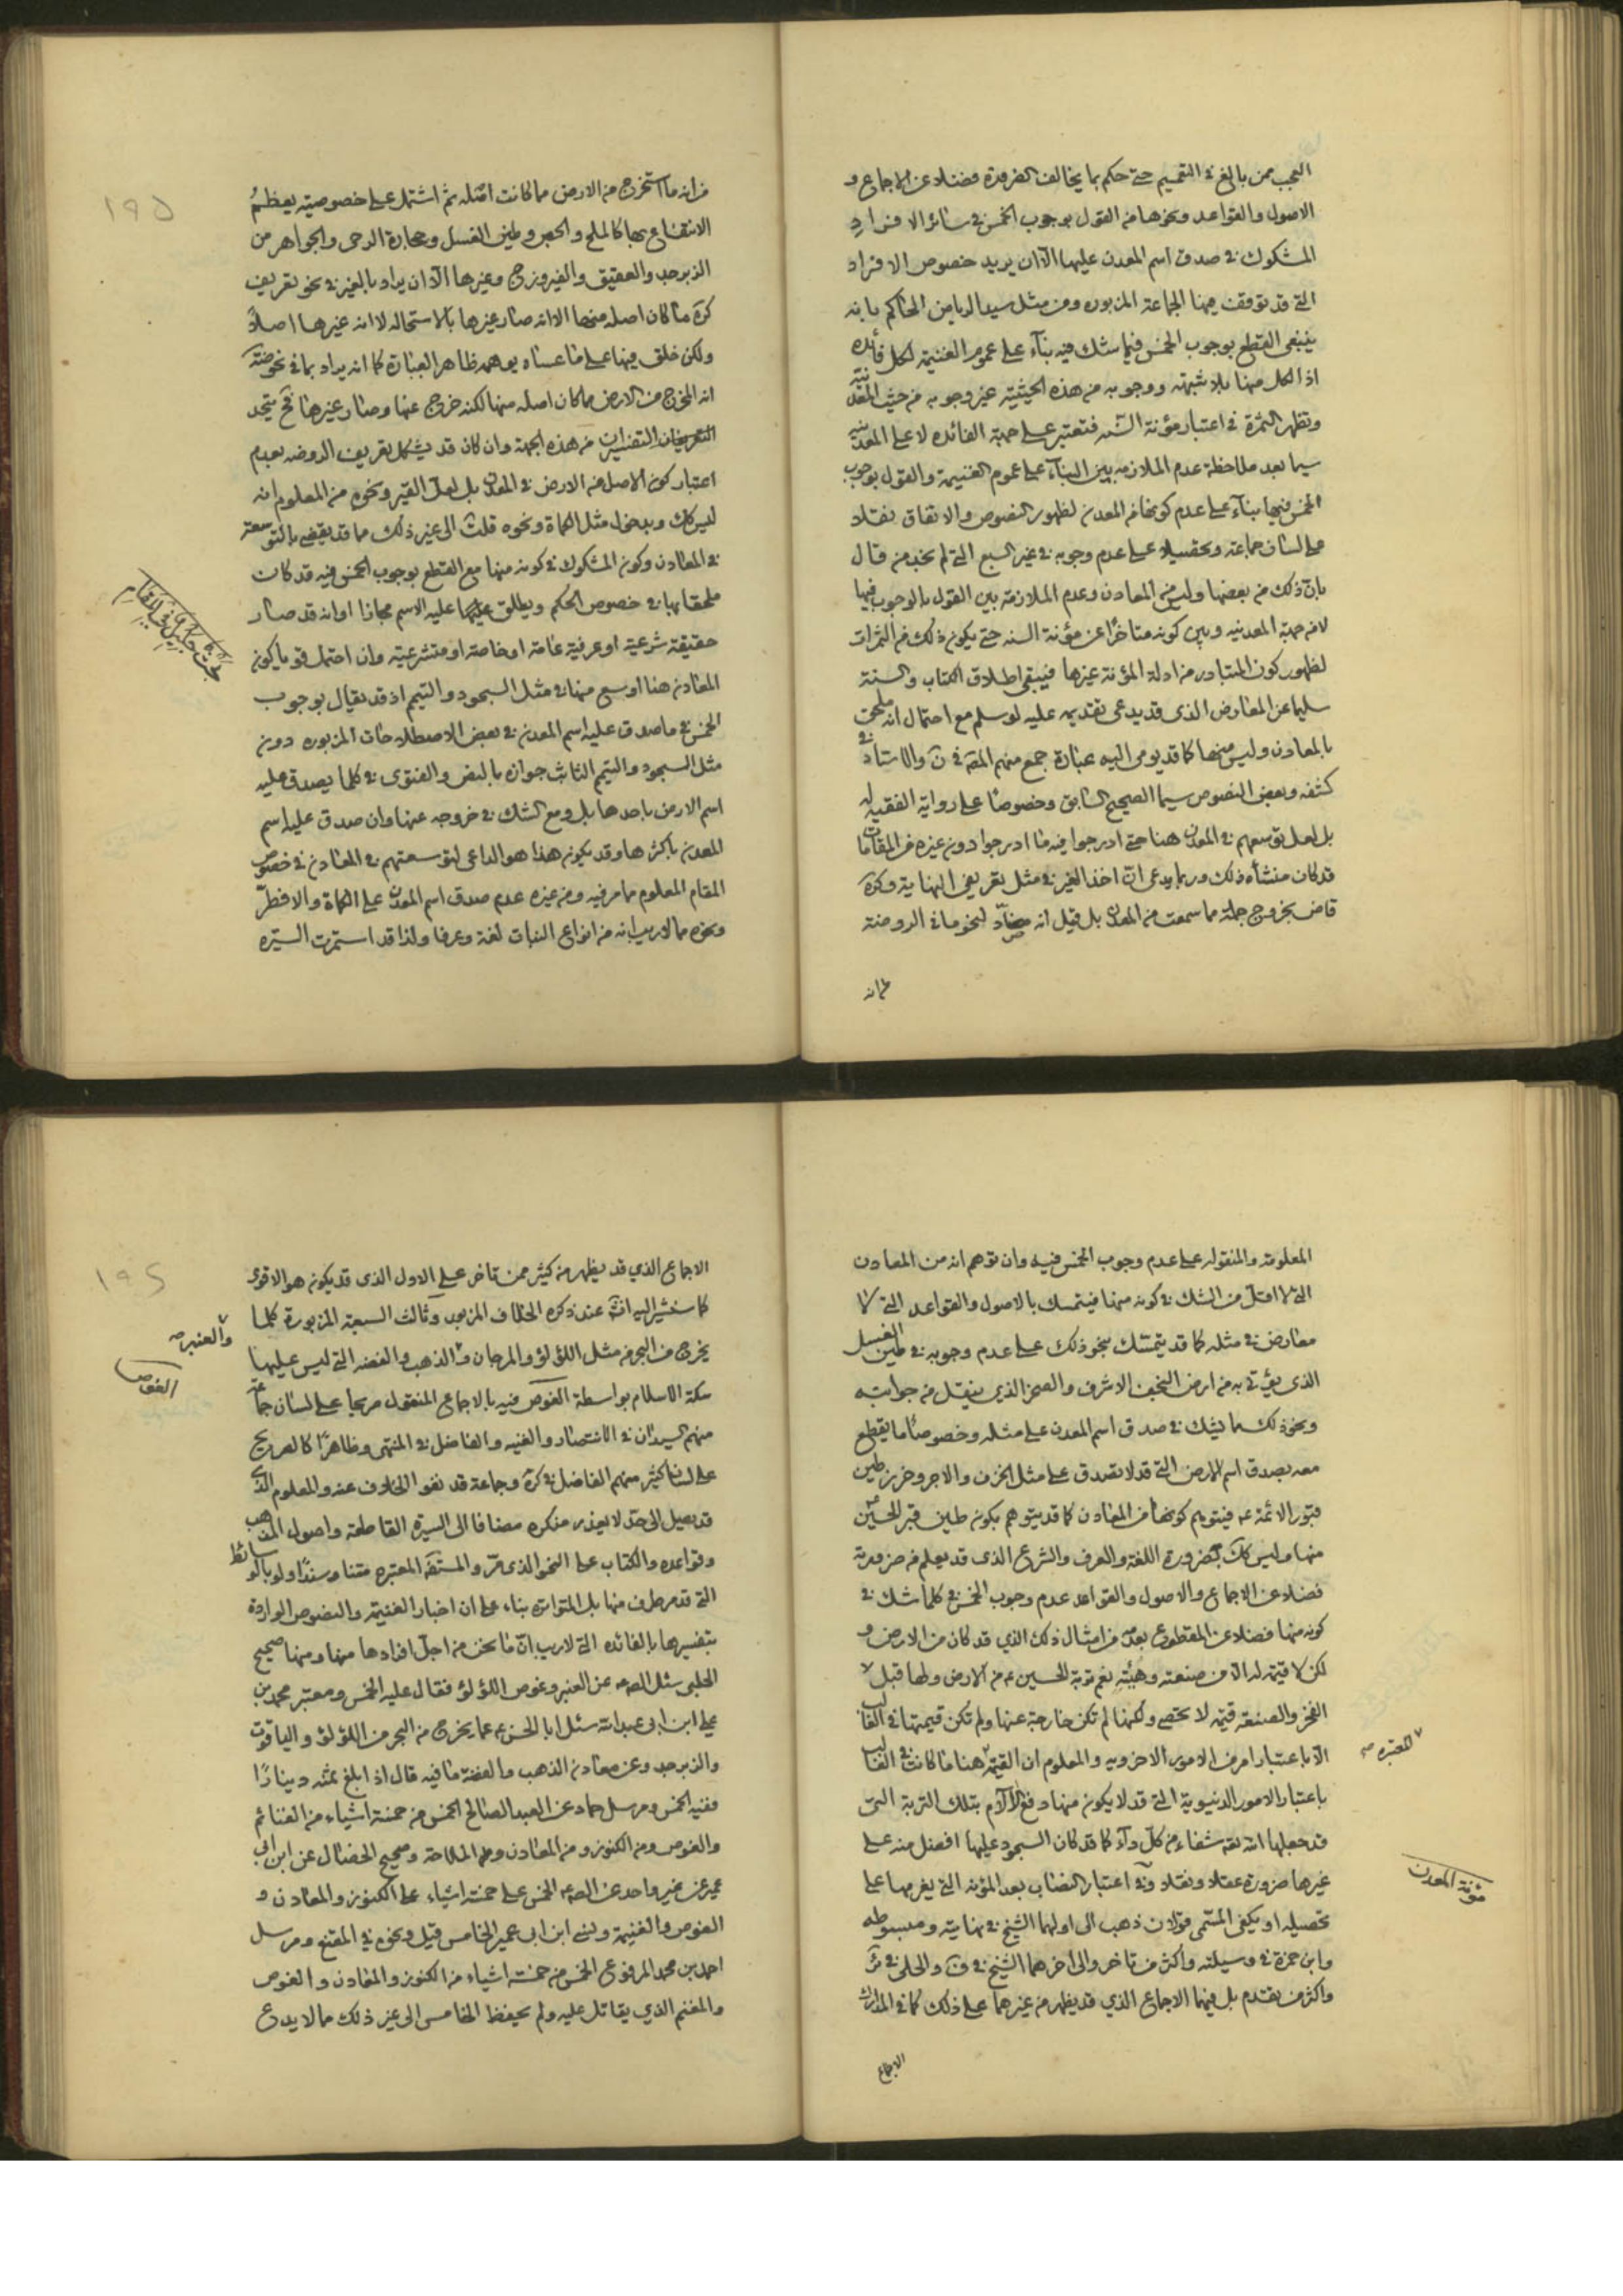 العجب ممن بالغ في التعميم حتى حكم بما يخالف الضرورة فضلا عن الاجماع و
الاصول والقواعد ونحوها من القول بوجوب الخمس في سائر الافراد
المشكوك في صدق اسم المعدن عليها الا ان يريد خصوص الافراد
التي قد توقفت فيها الجماعة المزبورة ومن مثل سيد الرياض الحاكم بانه
ينبغي القطع بوجوب الخمس فيما شك فيه بناء على عموم الغنيمة لكل فائدة
اذ الكل منها بلا شبهته ووجوبه من هذه الحيثية غير وجوبه من حيث المعدنية
وتظهر الثمرة في اعتبار مؤنة السنة فتعتبر على جهة الفائده لا على المعدنيه
سيما بعد ملاحظة عدم الملازمه بين البناء على عموم الغنيمة والقول بوجوب
الخمس فيها بناء على عدم كونها من المعدن لظهور النصوص والاتفاق نقلا
على لسان جماعة وتحصيلا على عدم وجوبه في غير السبع التي لم نجد من قال
بان ذلك من بعضها وليس من المعادن وعدم الملازمة بين القول بالوجوب فيها
لا من جهة المعدنيه وبين كونه متاخرا عن مؤنة السنه حتى يكون ذلك من الثمرات
لظهور كون المتبادر من ادلة المؤنة غيرها فيبقى اطلاق الكتاب والسنة
سليما عن المعارض الذى قد يدعى تقديمه عليه لو سلم مع احتمال انه ملحق
بالمعادن وليس منها كما قد يومى اليه عبارة جمع منهم المص في ن والاستاد في
كشفه وبعض النصوص سيما الصحيح السابق وخصوصا على رواية الفقيه له
بل لعل توسعهم في المعدن هنا حتى ادرجوا فيه ما ادرجوا دون غيره من المقامات
قد كان منشأه ذلك وربما يدعى ان اخذ الغير في مثل تعريفي النهاية وكره
قاض بخروج جملة مما سمعت من المعدن بل قيل انه مضاد لنحو ما في الروضة
من انه
من انه ما استخرج من الارض مما كانت اصله ثم اشتمل على خصوصية يعظم
الانتفاع بها كالملح والجص وطين الغسل وحجارة الرحى والجواهر من
الزبرجد والعقيق والفيروزج وغيرها الا ان يراد بالغير في نحو تعريف
كره ما كان اصله منها الا انه صار غيرها بالاستحاله لا انه غيرها اصلا
ولكن خلق فيها على ما عساه يوهمه ظاهر العبارة كما انه يراد بما في نحو ضة
انه المخرج من الارض مما كان اصله منها لكنه خرج عنها وصار غيرها فح يتحد
التعريفان التفسيران من هذه الجهة وان كان قد يشكل تعريف الروضه بعدم
اعتبار كون الاصل من الارض في المعدن بل لعل القير ونحوه من المعلوم انه
ليس كك ويدخل مثل الكماة ونحوه قلت الى غير ذلك مما قد يقضى بالتوسعة
في المعادن وكون المشكوك في كونه منها مع القطع بوجوب الخمس فيه قد كانت
ملحقا بها في خصوص الحكم ويطلق عليها عليه الاسم مجازا او انه قد صار
حقيقة شرعية او عرفية عامة او خاصة او متشرعية وان احتمل قويا كون
المعادن هنا اوسع منها في مثل السجود والتيمم اذ قد يقال بوجوب
الخمس في ما صدق عليه اسم المعدن في بعض الاصطلاحات المزبوره دون
مثل السجود والتيمم الثابت جوازه بالنص والفتوى في كلما يصدق عليه
اسم الارض باحدها بل ومع الشك في خروجه عنها وان صدق عليه اسم
المعدن باكثرها وقد يكون هذا هو الداعى لتوسعتهم في المعادن في خصوص
المقام المعلوم مما مر فيه ومن غيره عدم صدق اسم المعدن على الكماة والافطر
ونحوه مما لا ريب انه من انواع النبات لغة وعرفا ولذا قد استمرت السيره
١٩٥
المعلومة والمنقوله على عدم وجوب الخمس فيه وان توهم انه من المعادن
التي لا اقل من الشك في كونه منها فيتمسك بالاصول والقواعد التي لا
معارض في مثله كما قد يتمسك بنحو ذلك على عدم وجوبه في طين الغسل
الذى يؤتى به من ارض النجف الاشرف والصخر الذى ينقل من جوانبه
ونحو ذلك مما يشك في صدق اسم المعدن على مثله وخصوصا ما يقطع
معه بصدق اسم الارض التي قد لا تصدق على مثل الخزف والاجر وخرز طين
قبور الائمة ع فيتوهم كونها من المعادن كما قد يتوهم بكونه طين قبر الحسين ع
منها وليس كك بضرورة اللغة والعرف والشرع الذى قد يعلم من ضرورته
فضلا عن الاجماع والاصول والقواعد عدم وجوب الخمس في كلما شك في
كونه منها فضلا عن المقطوع بعدمه من امثال ذلك الذي قد كان من الارض و
لكن لا قيمة له الا من صنعته وهيئته نعم تربة الحسين ع من الارض ولها قبل
الفخر والصنعة قيمة لا تحصى ولكنها لم تكن خارجة عنها ولم تكن قيمتها في الغالب
الا باعتبار امر من الامور الاخرويه والمعلوم ان القيمة هنا ما كانت في الغالب
باعتبار الامور الدنيوية التي قد لا يكون منها دفع الآلام بتلك التربة التي
قد جعلها الله تعه شفاء من كل داء كما قد كان السجود عليها افضل منه على
غيرها ضرورة عقلا ونقلا وفي اعتبار النصاب بعد المؤنة التي يغرمها على
تحصيله او يكفى المسمى قولان ذهب الى اولهما الشيخ في نهايته ومبسوطه
وابن حمزة في وسيلته واكثر من تاخر والى اخرهما الشيخ في ف والحلى في ئر
واكثر من تقدم بل فيهما الاجماع الذي قد يظهر من غيرهما على ذلك كما في المدارك
المعتبره صح
مؤنة المعدن
الاجماع
الاجماع الذي قد يظهر من كثير ممن تاخر على الاول الذى قد يكون هو الاقوى
كما سنشير اليه انش عند ذكره الخلاف المزبور وثالث السبعة المزبورة كلما
يخرج من البحر من مثل اللؤلؤ والمرجان والذهب والفضه التي ليس عليها
سكة الاسلام بواسطة الغوص فيه بالاجماع المنقول صريحا على لسان جماعة
منهم السيدان في الانتصار والغنيه والفاضل في المنتهى وظاهرا كالصريح
على لسان كثير منهم الفاضل في كره وجماعة قد نفوا الخلاف عنه والمعلوم الذى
قد يصل الى حد لا يعذر منكره مضافا الى السيرة القاطعة واصول المذهب
وقواعده والكتاب على النحو الذى مر والمستفيضة المعتبره متنا وسندا ولو بالوسائط
التي قد مر طرف منها بل المتواتره بناء على ان اخبار الغنيمة والنصوص الواردة
بتفسيرها بالفائده التي لا ريب ان ما نحن من اجل افرادها منها ومنها صحيح
الحلبى سئل الصه عن العنبر وغوص اللؤلؤ فقال عليه الخمس ومعتبر محمد بن
على ابن ابى عبدالله سئل ابا الحسن ع عما يخرج من البحر من اللؤلؤ والياقوت
والزبرجد وعن معادن الذهب والفضة ما فيه قال اذا بلغ ثمنه دينارا
ففيه الخمس ومرسل حماد عن العبد الصالح الخمس من خمسة اشياء من الغنائم
والغوص ومن الكنوز ومن المعادن والملاحة وصحيح الخصال عن ابن ابى
عمير عن غير واحد عن الصه الخمس على خمسة اشياء على الكنوز والمعادن و
الغوص والغنيمة ونسى ابن ابى عمير الخامس قيل ونحوه في المقنع ومرسل
احمد بن محمد المرفوع الخمس من خمسة اشياء من الكنوز والمعادن والغوص
والمغنم الذي يقاتل عليه ولم يحفظ الخامس الى غير ذلك مما لا يدع
والعنبر صح
الغوص